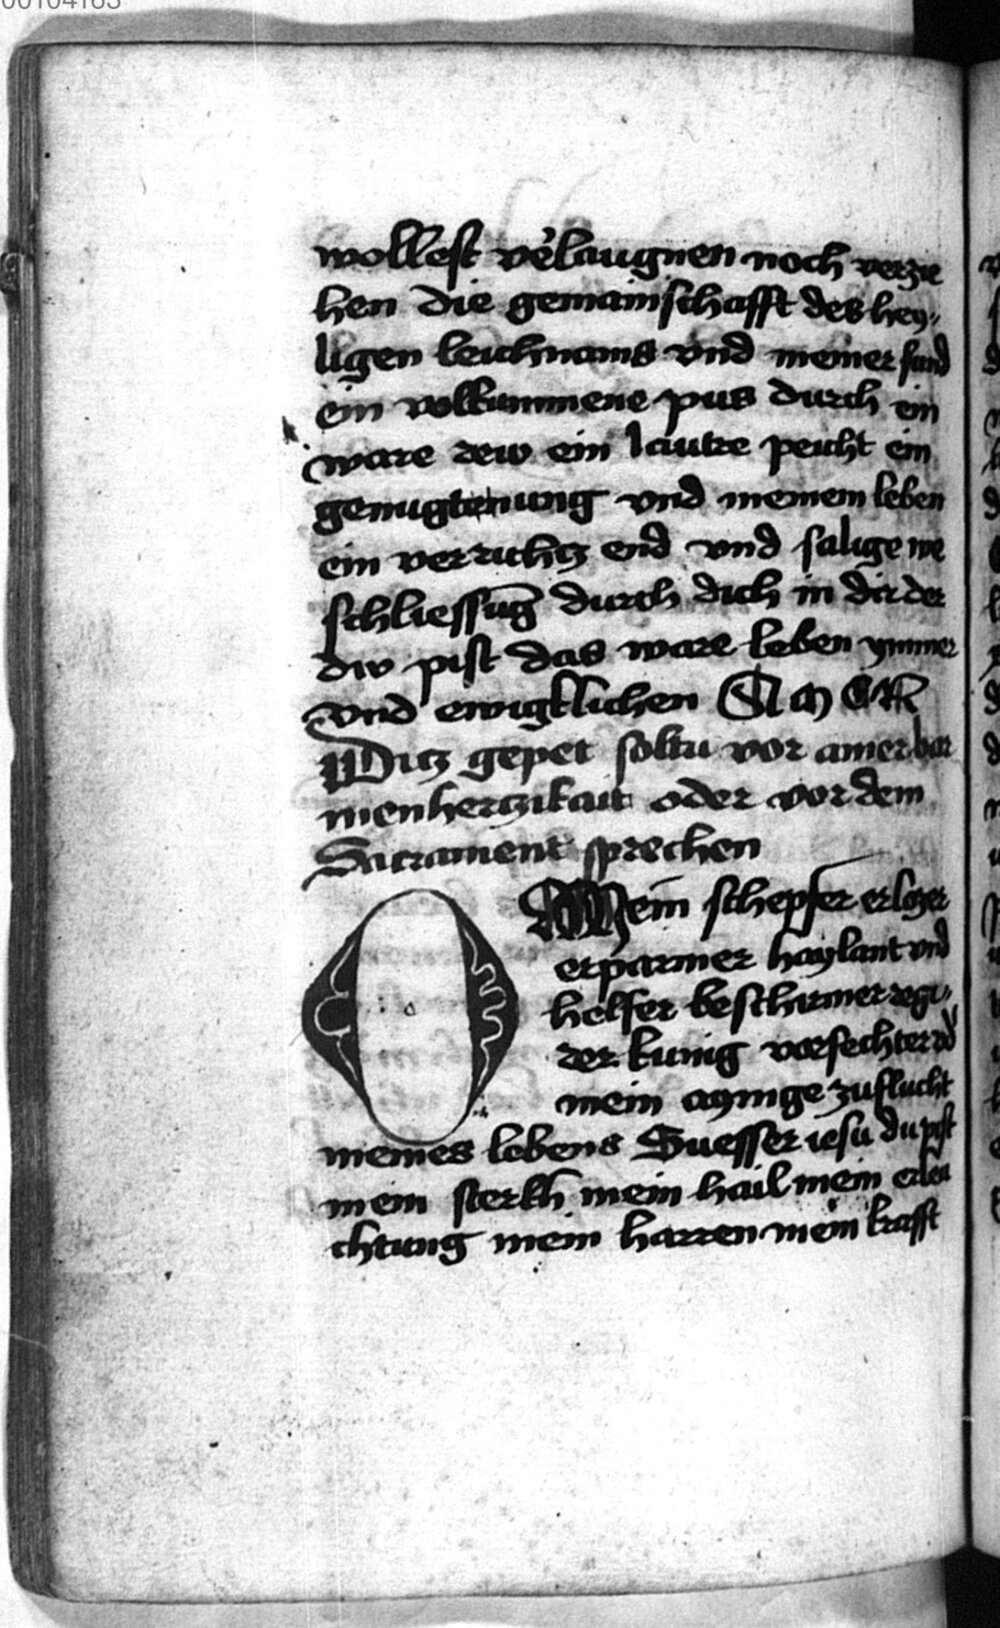 00104163
wollest v̾laugnen noch verzie
hen die gemainschafft des hey,
ligen leichnams vnd meiner sund
ein volkummene pus durch ein
ware rew ein lautre peicht ein
genugtunung vnd meinem leben
ein verrichtz end vnd salige we
schliessūg durch dich in dir der
dw pist das ware leben ymmer
vnd ewigklichen AMEN
Ditz gepet soltu vor ainer bar
menhertzikait oder vor dem
Sacrament sprechen
O Mein schepfer erloser
erparmer haylant vnd
helfer beschirmer regi,
rer kunig vorfechter
mein aynige zuflucht
meines lebens Suesser iesu du pist
mein sterkh mein hail mein erleu
chtung mein harren mein krafft